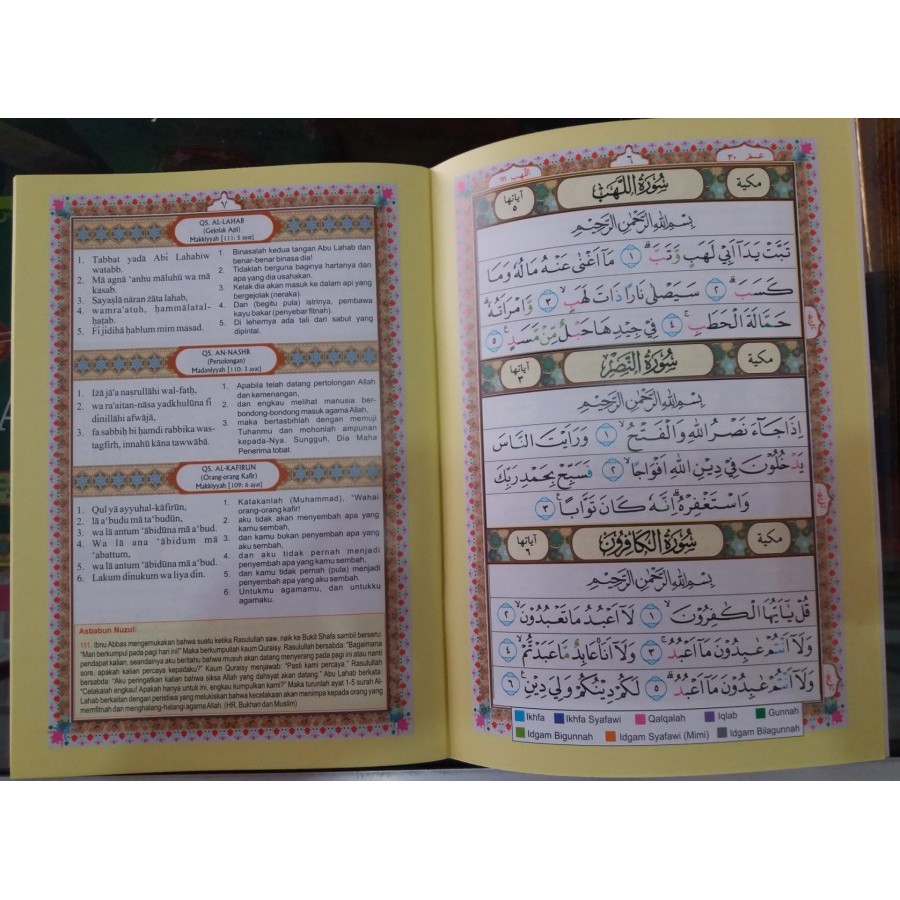 عم ٣٠
٦
اللهب ١١١
مكية
سُوْرَةُ اللَّهَبِ
آياتها ٥
بِسْمِ اللهِ الرَّحْمٰنِ الرَّحِيْمِ
تَبَّتْ يَدَآ اَبِيْ لَهَبٍ وَّتَبَّۗ ۝١ مَآ اَغْنٰى عَنْهُ مَالُهٗ وَمَا
كَسَبَۗ ۝٢ سَيَصْلٰى نَارًا ذَاتَ لَهَبٍۙ ۝٣ وَّامْرَاَتُهٗۗ
حَمَّالَةَ الْحَطَبِۚ ۝٤ فِيْ جِيْدِهَا حَبْلٌ مِّنْ مَّسَدٍ ۝٥
مكية
سُوْرَةُ النَّصْرِ
آياتها ٣
بِسْمِ اللهِ الرَّحْمٰنِ الرَّحِيْمِ
اِذَا جَآءَ نَصْرُ اللهِ وَالْفَتْحُۙ ۝١ وَرَاَيْتَ النَّاسَ
يَدْخُلُوْنَ فِيْ دِيْنِ اللهِ اَفْوَاجًاۙ ۝٢ فَسَبِّحْ بِحَمْدِ رَبِّكَ
وَاسْتَغْفِرْهُۗ اِنَّهٗ كَانَ تَوَّابًا ۝٣
مكية
سُوْرَةُ الْكَافِرُوْنَ
آياتها ٦
بِسْمِ اللهِ الرَّحْمٰنِ الرَّحِيْمِ
قُلْ يٰٓاَيُّهَا الْكٰفِرُوْنَۙ ۝١ لَآ اَعْبُدُ مَا تَعْبُدُوْنَۙ ۝٢
وَلَآ اَنْتُمْ عٰبِدُوْنَ مَآ اَعْبُدُۚ ۝٣ وَلَآ اَنَا۠ عَابِدٌ مَّا عَبَدْتُّمْۙ ۝٤
وَلَآ اَنْتُمْ عٰبِدُوْنَ مَآ اَعْبُدُۗ ۝٥ لَكُمْ دِيْنُكُمْ وَلِيَ دِيْنِ ۝٦
Ikhfa Ikhfa Syafawi Qalqalah Iqlab Gunnah
Idgam Bigunnah Idgam Syafawi (Mimi) Idgam Bilagunnah
٧
QS. AL-LAHAB
(Gejolak Api)
Makkiyyah [111: 5 ayat]
1. Tabbat yadā Abi Lahabiw
watabb.
2. Mā agnā 'anhu māluhū wa mā
kasab.
3. Sayaṣlā nāran żāta lahab,
4. wamra'atuh, ḥammālatal-
ḥaṭab.
5. Fī jīdihā ḥablum mim masad.
1. Binasalah kedua tangan Abu Lahab dan
benar-benar binasa dia!
2. Tidaklah berguna baginya hartanya dan
apa yang dia usahakan.
3. Kelak dia akan masuk ke dalam api yang
bergejolak (neraka).
4. Dan (begitu pula) istrinya, pembawa
kayu bakar (penyebar fitnah).
5. Di lehernya ada tali dari sabut yang
dipintal.
QS. AN-NASHR
(Pertolongan)
Madaniyyah [110: 3 ayat]
1. Iżā jā'a nasrullāhi wal-fatḥ,
2. wa ra'aitan-nāsa yadkhulūna fī
dīnillāhi afwājā,
3. fa sabbiḥ bi ḥamdi rabbika was-
tagfirh, innahū kāna tawwābā.
1. Apabila telah datang pertolongan Allah
dan kemenangan,
2. dan engkau melihat manusia ber-
bondong-bondong masuk agama Allah,
3. maka bertasbihlah dengan memuji
Tuhanmu dan mohonlah ampunan
kepada-Nya. Sungguh, Dia Maha
Penerima tobat.
QS. AL-KAFIRUN
(Orang-orang Kafir)
Makkiyyah [109: 6 ayat]
1. Qul yā ayyuhal-kāfirūn,
2. lā a'budu mā ta'budūn,
3. wa lā antum 'ābidūna mā a'bud.
4. Wa lā ana 'ābidum mā
'abattum,
5. wa lā antum 'ābidūna mā a'bud.
6. Lakum dīnukum wa liya dīn.
1. Katakanlah (Muhammad), "Wahai
orang-orang kafir!
2. aku tidak akan menyembah apa yang
kamu sembah,
3. dan kamu bukan penyembah apa yang
aku sembah,
4. dan aku tidak pernah menjadi
penyembah apa yang kamu sembah,
5. dan kamu tidak pernah (pula) menjadi
penyembah apa yang aku sembah.
6. Untukmu agamamu, dan untukku
agamaku.
Asbabun Nuzul:
111. Ibnu Abbas mengemukakan bahwa suatu ketika Rasulullah saw. naik ke Bukit Shafa sambil berseru:
"Mari berkumpul pada pagi hari ini!" Maka berkumpullah kaum Quraisy. Rasulullah bersabda: "Bagaimana
pendapat kalian, seandainya aku beritahu bahwa musuh akan datang menyerang pada pagi ini atau nanti
sore, apakah kalian percaya kepadaku?" Kaum Quraisy menjawab: "Pasti kami percaya." Rasulullah
bersabda: "Aku peringatkan kalian bahwa siksa Allah yang dahsyat akan datang." Abu Lahab berkata:
"Celakalah engkau! Apakah hanya untuk ini, engkau kumpulkan kami?" Maka turunlah ayat 1-5 surah Al-
Lahab berkaitan dengan peristiwa yang melukiskan bahwa kecelakaan akan menimpa kepada orang yang
memfitnah dan menghalang-halangi agama Allah. (HR. Bukhari dan Muslim)